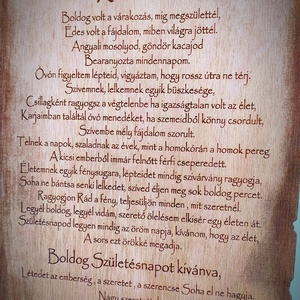 Boldog volt a várakozás, míg megszülettél,
Édes volt a fájdalom, miben világra jöttél.
Angyali mosolyod, göndör kacajod
Bearanyozta mindennapom.
Óvón figyeltem lépteid, vigyáztam, hogy rossz útra ne térj.
Szívemnek, lelkemnek egyik büszkesége,
Csillagként ragyogsz a végtelenbe ha igazságtalan volt az élet,
Karjaimban találtál óvó menedéket, ha szemeidből könny csordult,
Szívembe mély fájdalom szorult.
Telnek a napok, szaladnak az évek, mint a homokórán a homok pereg
A kicsi emberből immár felnőtt férfi cseperedett.
Életemnek egyik fénysugara, lépteidet mindig szivárvány ragyogja,
Soha ne bántsa senki lelkedet, szíved éljen meg sok boldog percet.
Ragyogjon Rád a fény, teljesüljön minden, mit szeretnél.
Legyél boldog, legyél vidám, szerető ölelésem elkísér egy életen át.
Születésnapod legyen mindig az öröm napja, kívánom, hogy csodás
A sors ezt örökké megadja.
Boldog Születésnapot kívánva,
Létedet az emberség, a szeretet, a szerencse Soha el ne hagyja.
Nagy